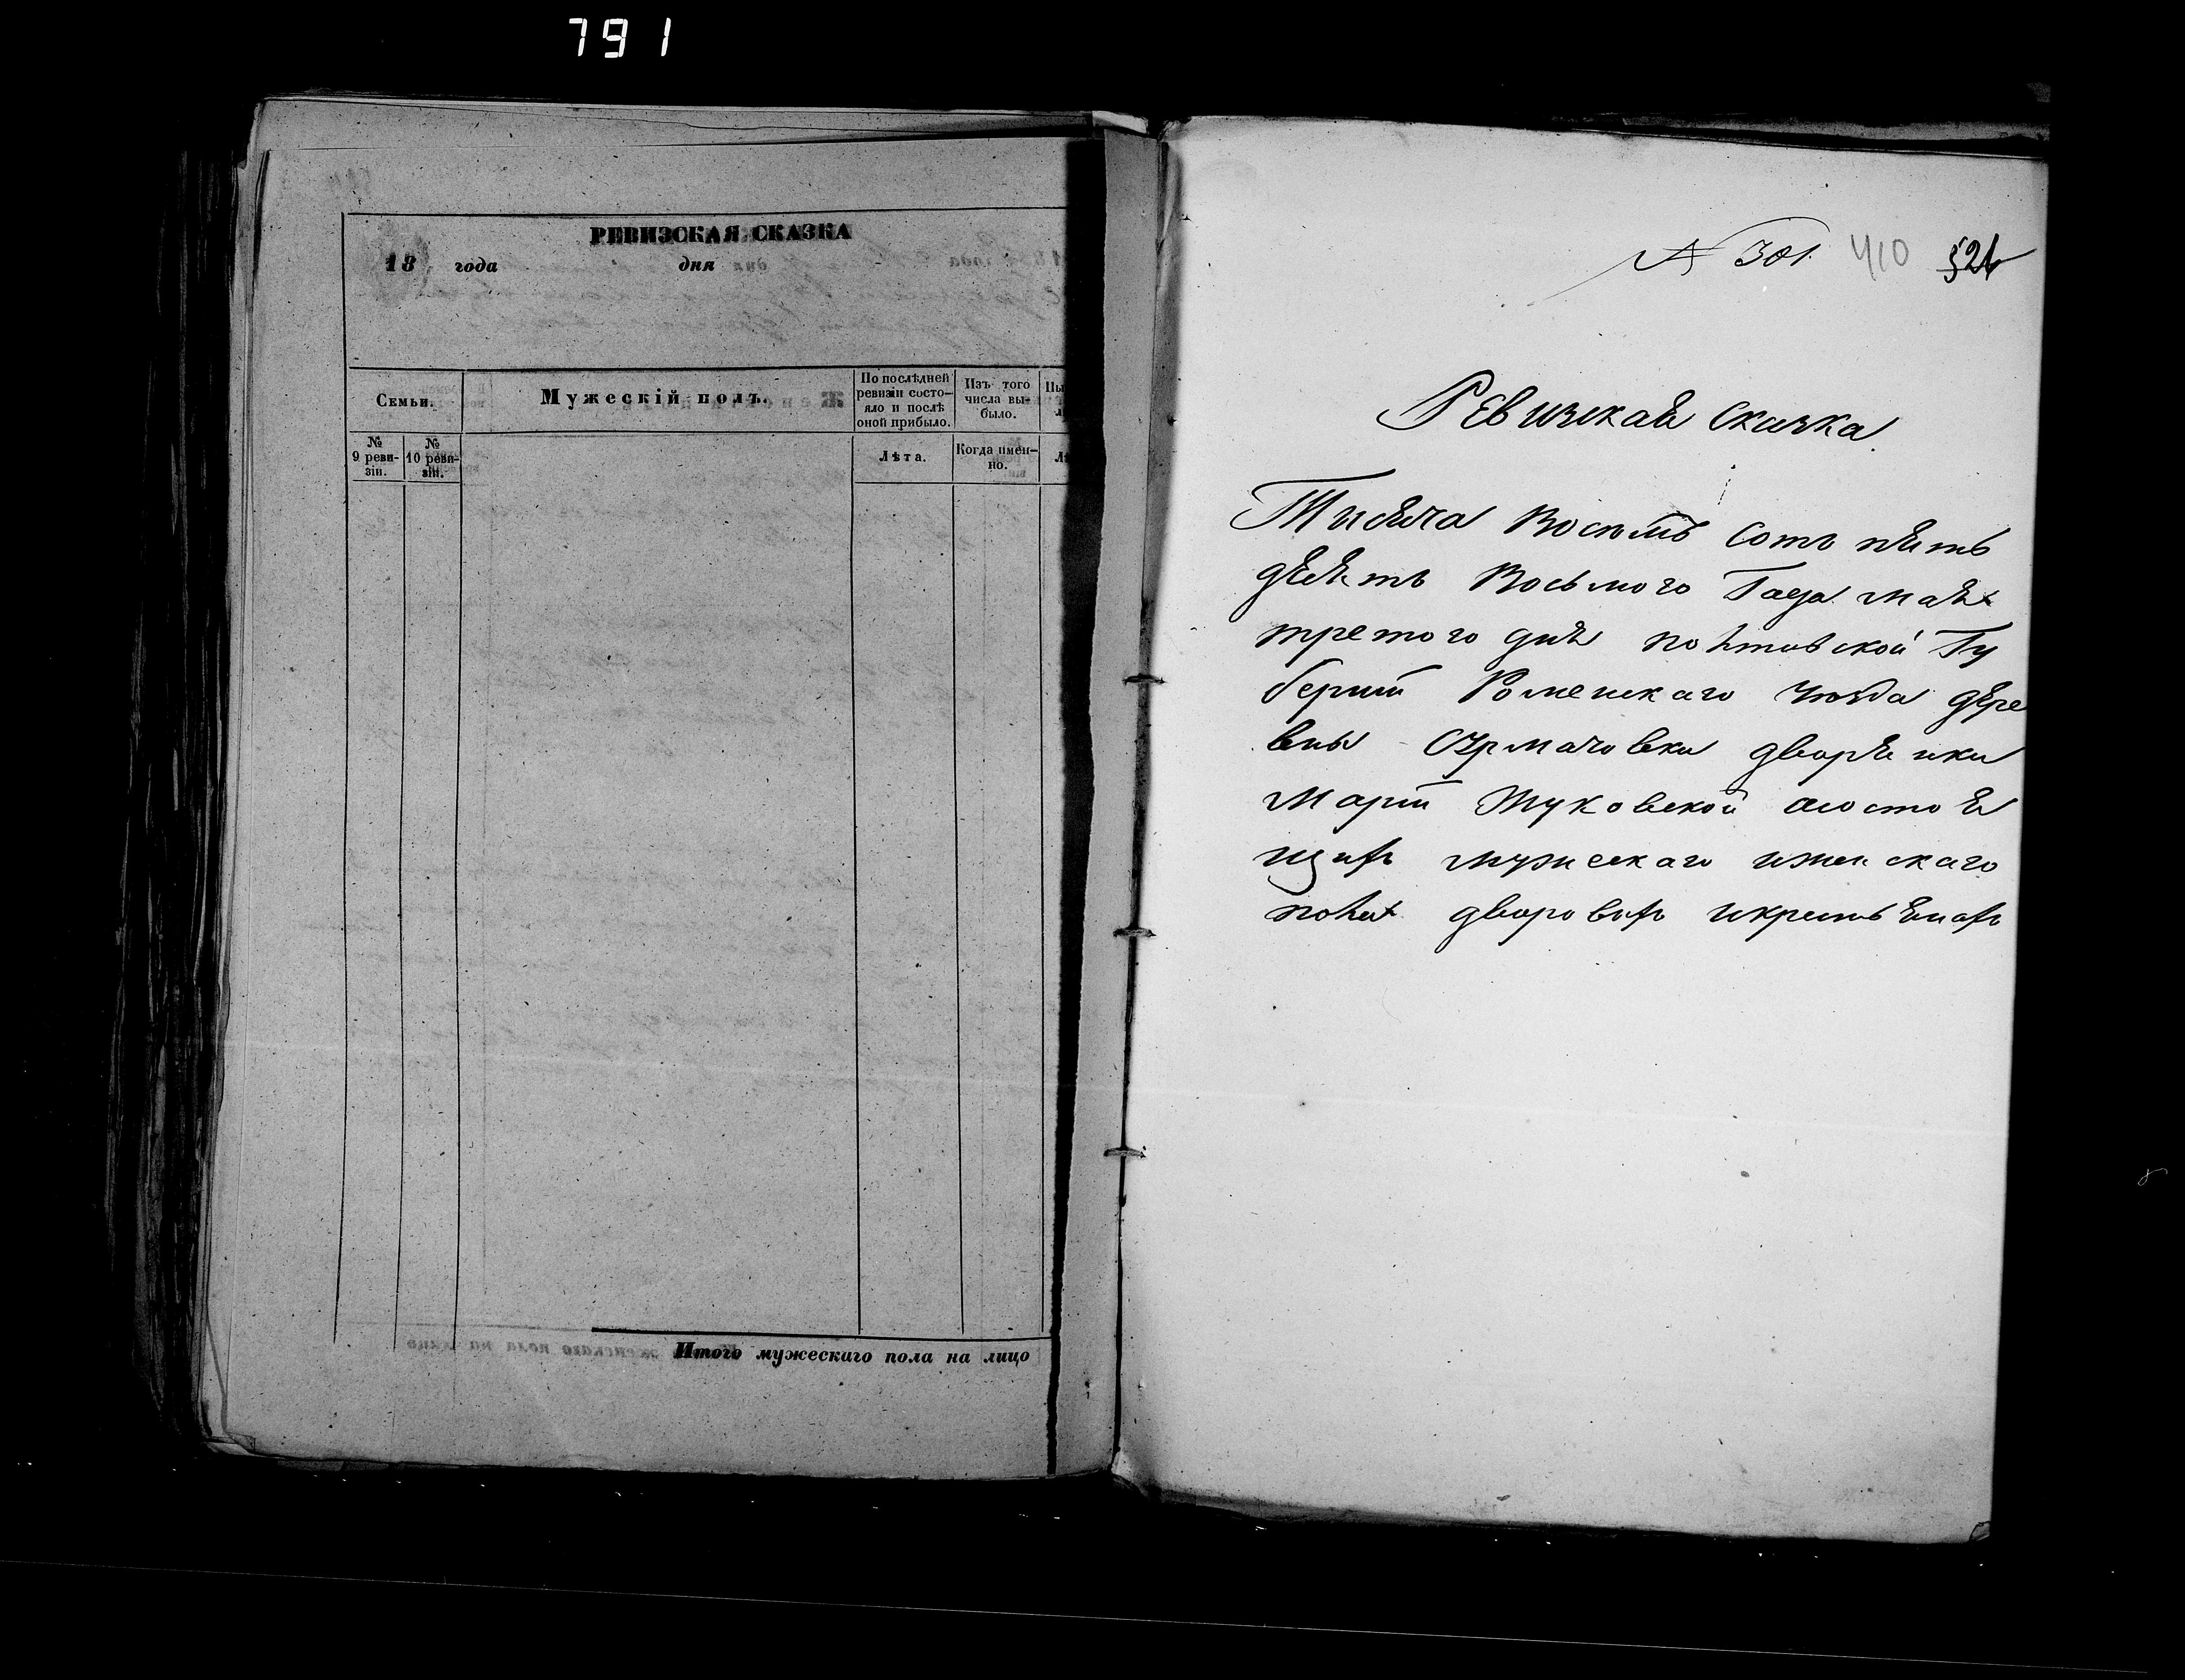 791
РЕВИЗСКАЯ СКАЗКА
18 года дня
Семьи.
Мужескій полъ.
По послѣдней ревизіи состо-яло и послѣ оной прибыло.
Изъ того числа вы-было.
№ 9 реви-зіи.
№ 10 реви-зіи.
Лѣта.
Когда имен-но.
Итого мужескаго пола на лицо
№ 301. 410 521
Ревизская Сказка
Тысяча Восемь Сотъ пять
десятъ Восьмого Года мая
третого дня полтавской Гу
берніи Роменскаго уезда дере
вны дворянки
Маріи Жуковской состоя
щихъ мужескаго иженскаго
пола дворовыхъ икрестьянахъ